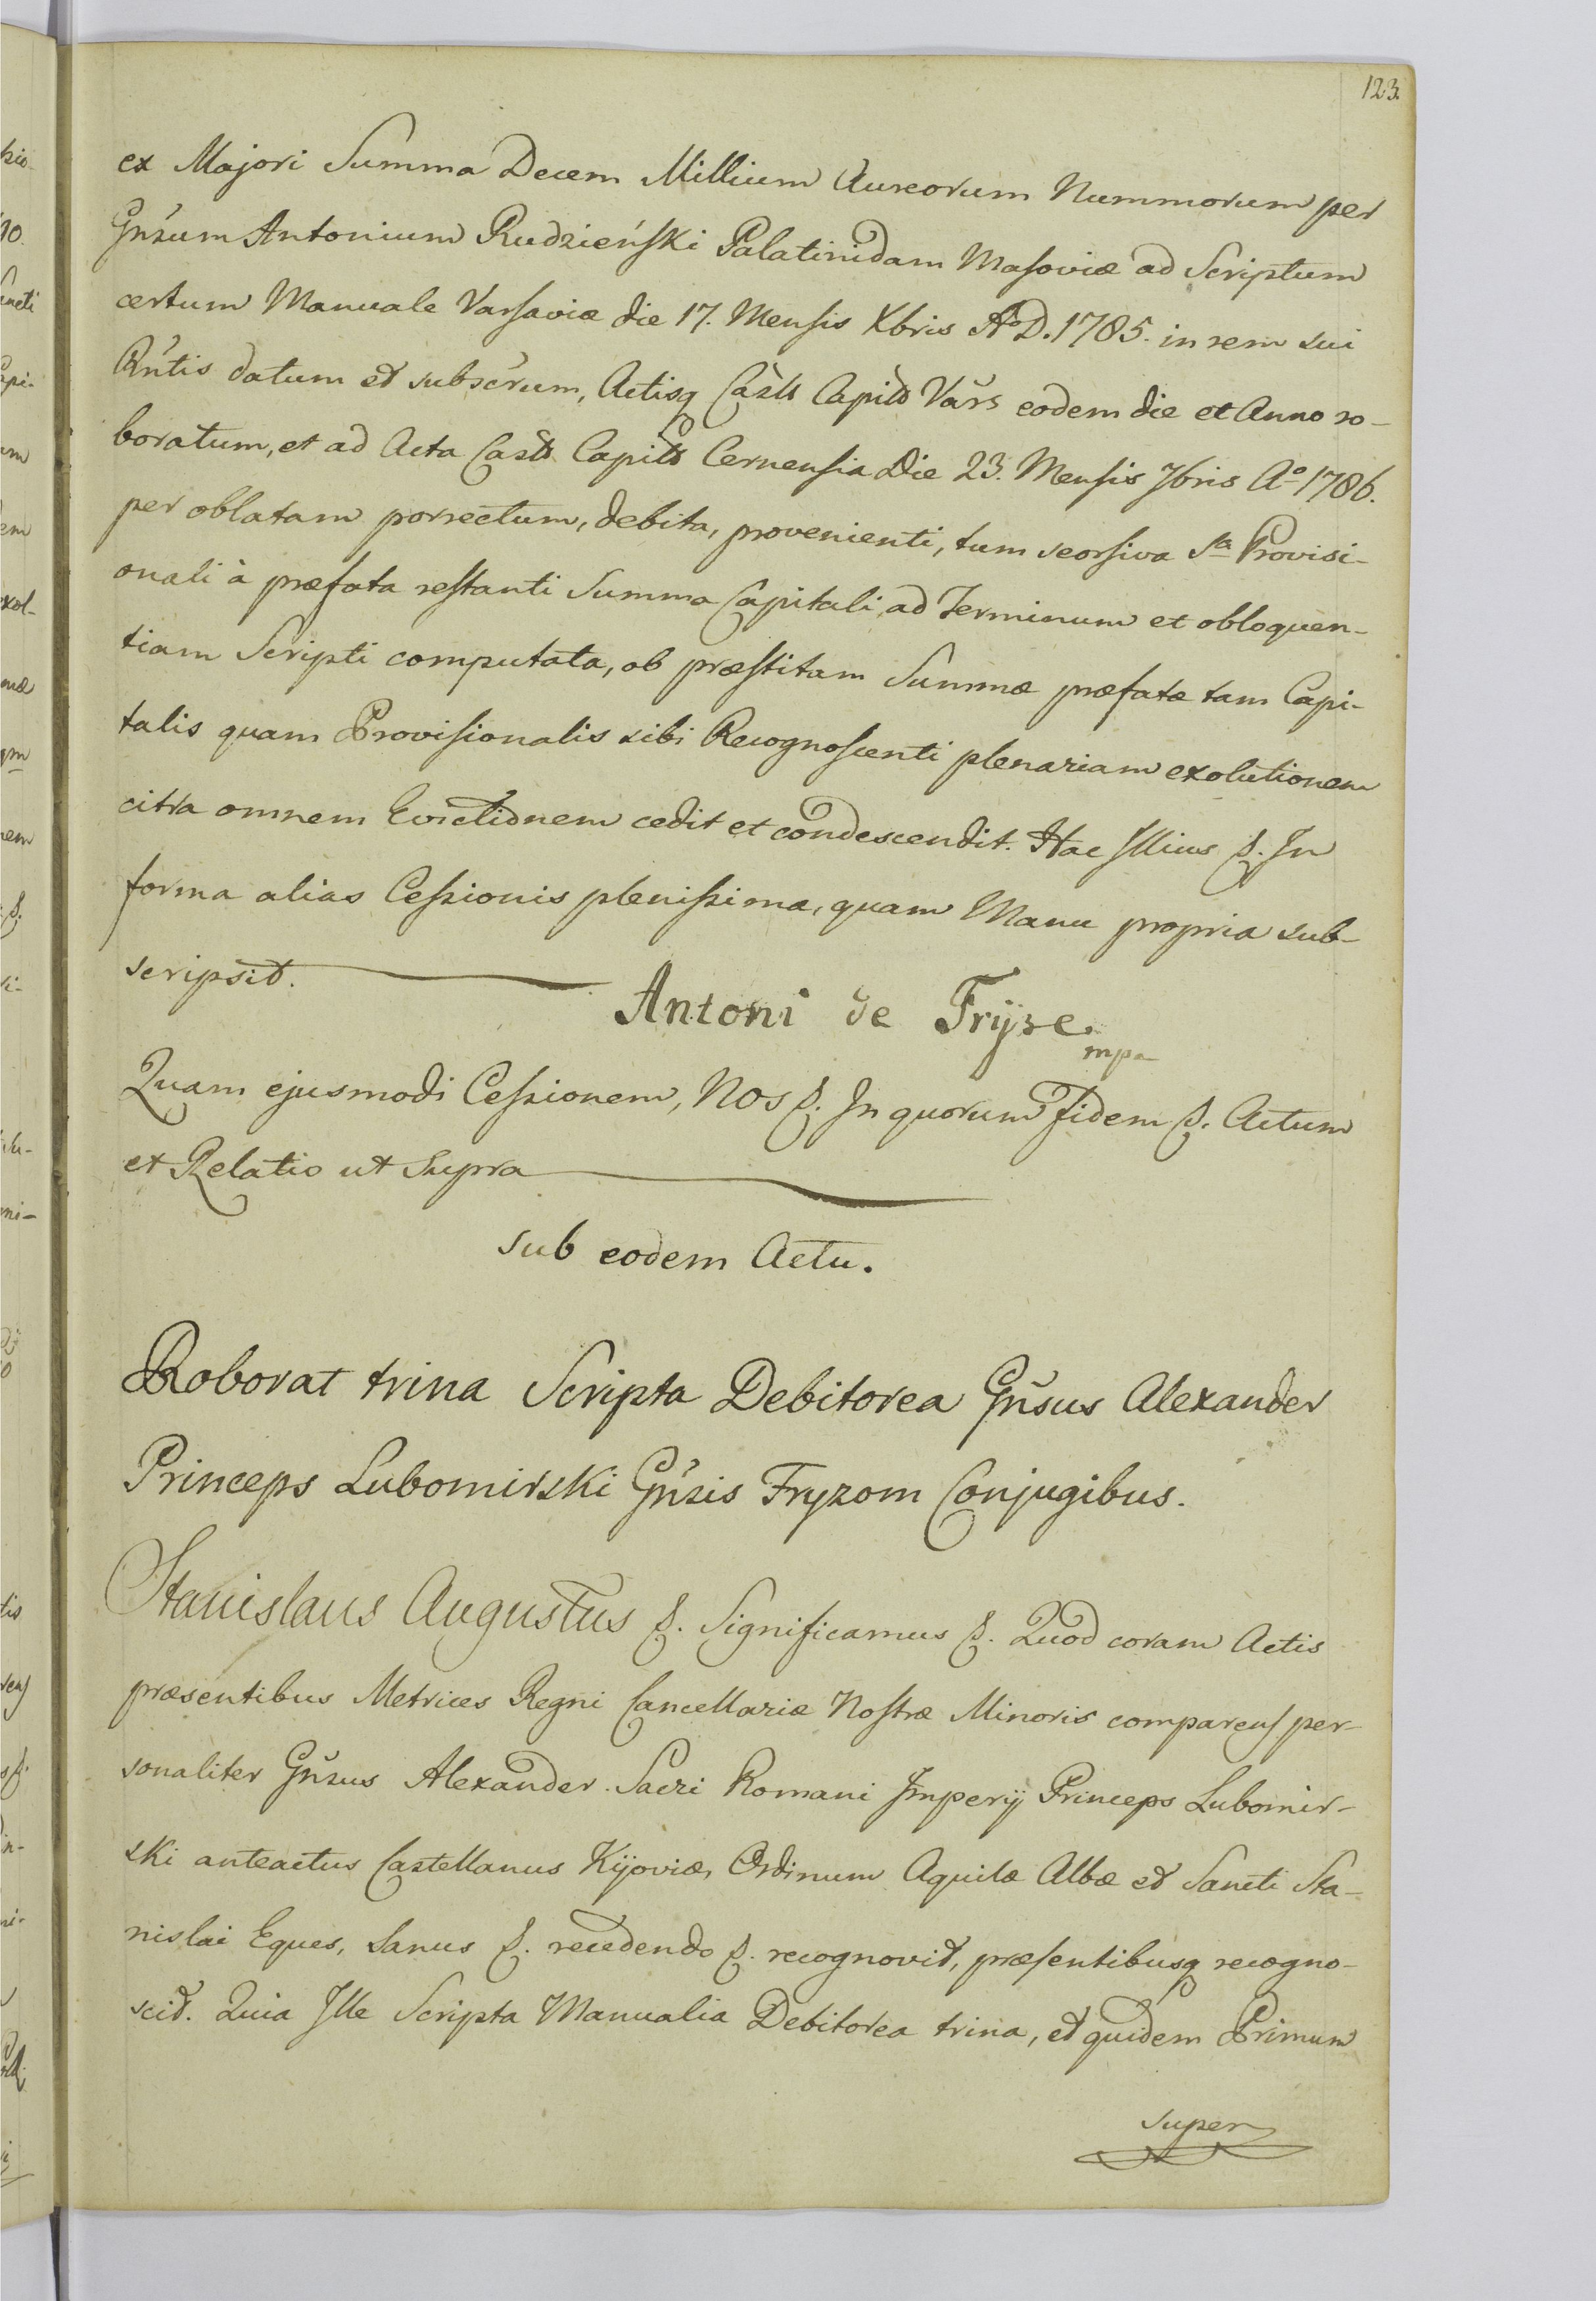 123.
ex Majori Summa Decem Millium Aureorum Nummorum per
Gn̄sum Antonium Rudzieński Palatinidam Masoviæ ad Scriptum
certum Manuale Varsaviæ die 17. Mensis Xbris A° D. 1785. in rem sui
Rn̄tis datum et subscr̄um, Actisq Cas̄ts Capits Var̄s eodem die et Anno ro-
boratum, et ad Acta Casts Capits Cernensia Die 23. Mensis 7bris A° 1786.
per oblatam porrectum, debita, provenienti, tum seorsiva Sa Provisi-
onali à præfata restanti Summa Capitali, ad Terminum et obloquen-
tiam Scripti computata, ob præstitam Summæ præfatæ tam Capi-
talis quam Provisionalis sibi Recognoscenti plenariam exolutionem
citra omnem Evictionem cedit et condescendit. Hac Illius &. In
forma alias Cessionis plenissima, quam Manu propria sub-
scripsit.
Antoni de Fryze
mpa
Quam ejusmodi Cessionem, Nos &. In quorum Fidem &. Actum
et Relatio ut Supra
sub eodem Actu.
Roborat trina Scripta Debitorea Gn̄sus Alexander
Princeps Lubomirski Gn̄sis Fryzom Conjugibus.
Stanislaus Augustus &. Significamus &. Quod coram Actis
præsentibus Metrices Regni Cancellariæ Nostræ Minoris comparens per-
sonaliter Gn̄sus Alexander Sacri Romani Imperij Princeps Lubomir-
ski anteactus Castellanus Kijoviæ, Ordinum Aquilæ Albæ et Sancti Sta-
nislai Eques, sanus &. recedendo &. recognovit, præsentibusq recogno-
scit. Quia Ille Scripta Manualia Debitorea trina, et quidem Primum
super